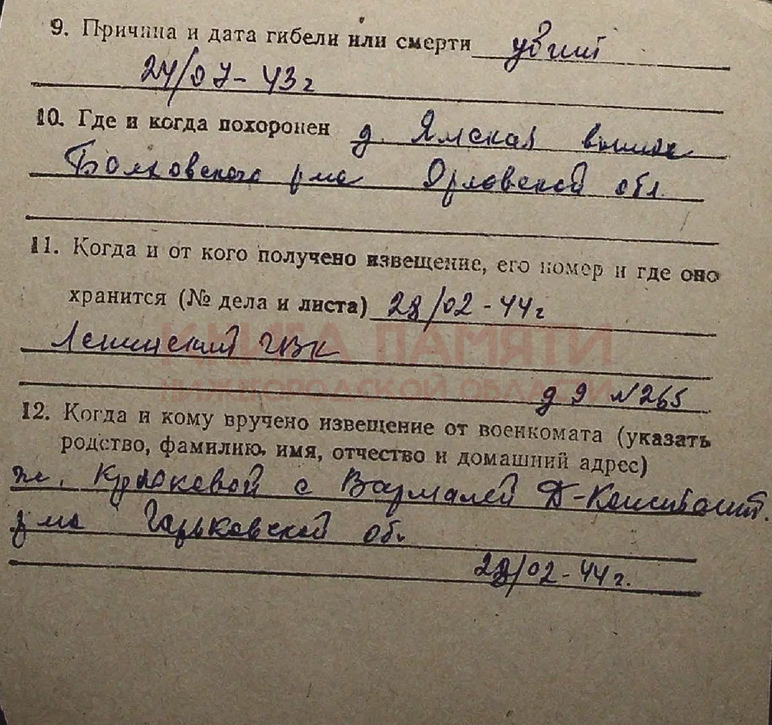 9. Причина и дата гибели или смерти убит
24/07-43г
10. Где и когда похоронен д. Ямская
Болховского р-на Орловской обл.
11. Когда и от кого получено извещение, его номер и где оно
хранится (№ дела и листа) 28/02-44г
Ленинский РВК
д 9 №265
КНИГА ПАМЯТИ
НИЖЕГОРОДСКОЙ ОБЛАСТИ
12. Когда и кому вручено извещение от военкомата (указать
родство, фамилию, имя, отчество и домашний адрес)
ж. с Вармалей Д-Константи.
р-на Горьковской об.
28/02-44г.